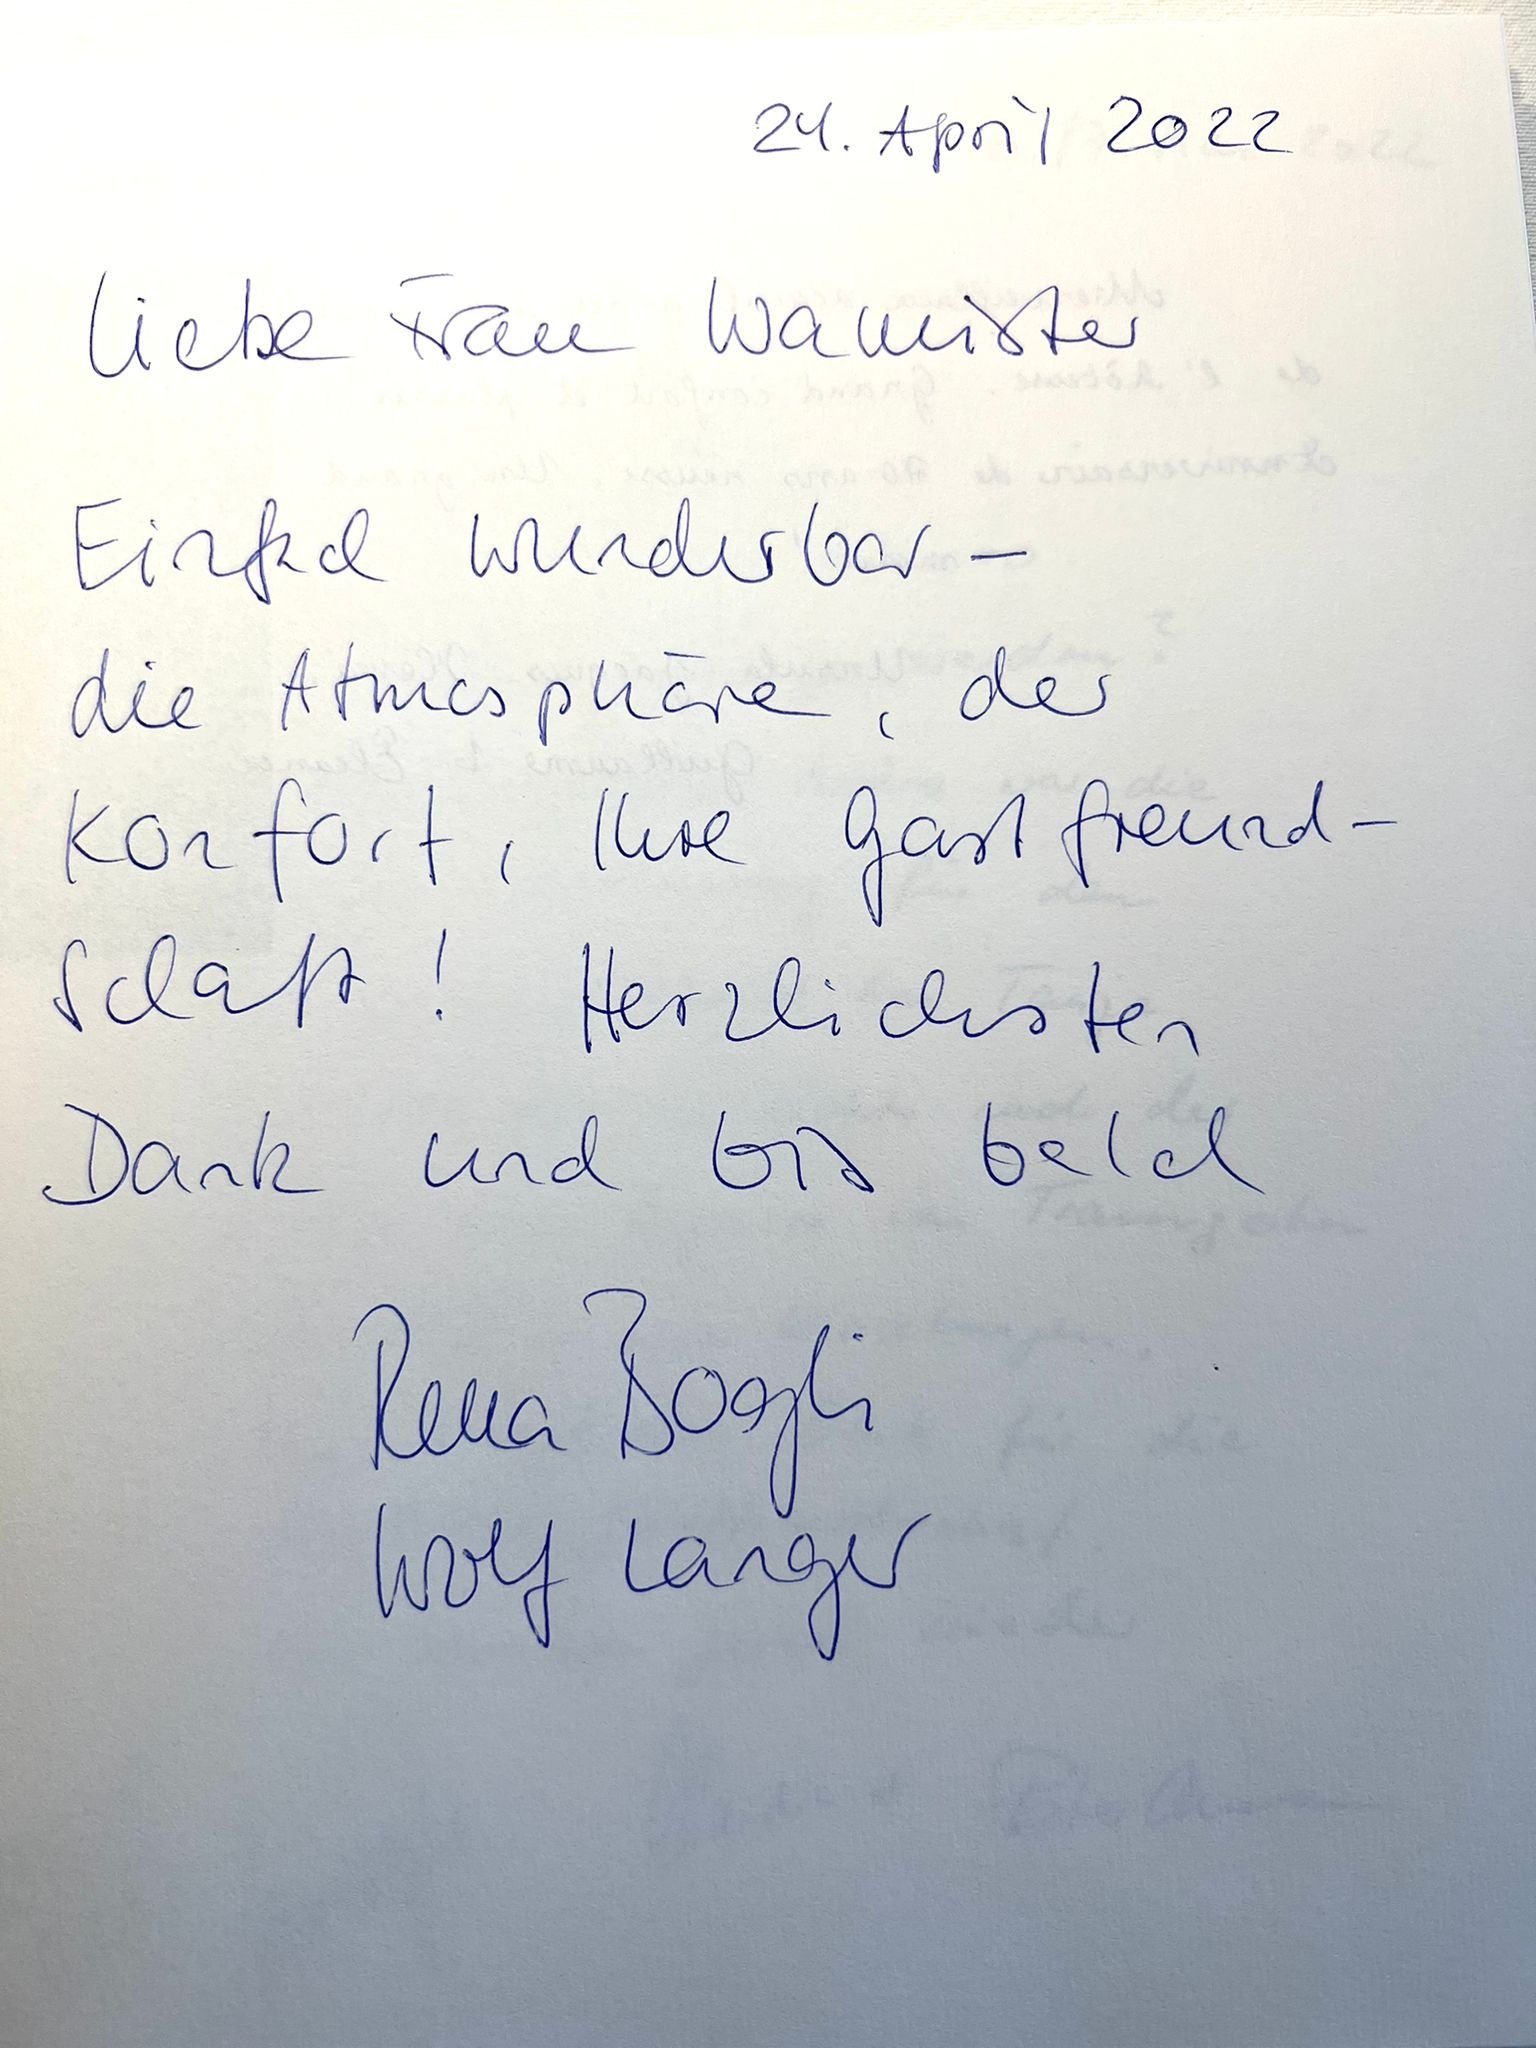 24. April 2022
Liebe Frau
Einfach wunderbar –
die Atmosphäre, der
Konfort, Ihre Gastfreund-
schaft! Herzlichsten
Dank und bis bald
Rena Bögli
Wolf Langer